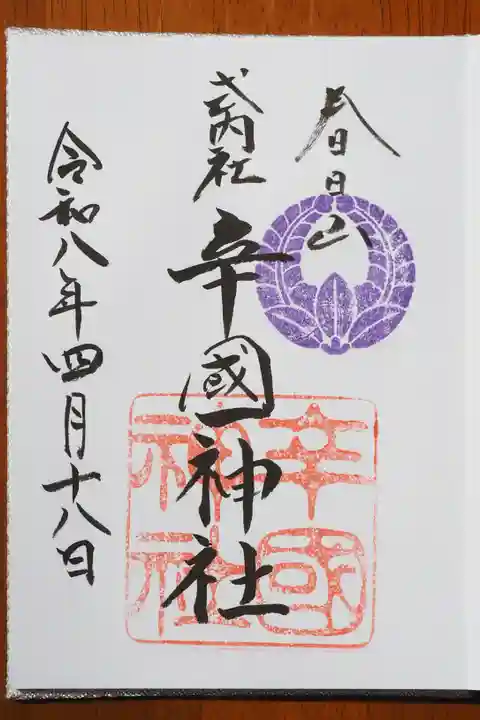 春日山
式内社
辛國神社
令和八年四月十八日
辛國
神社